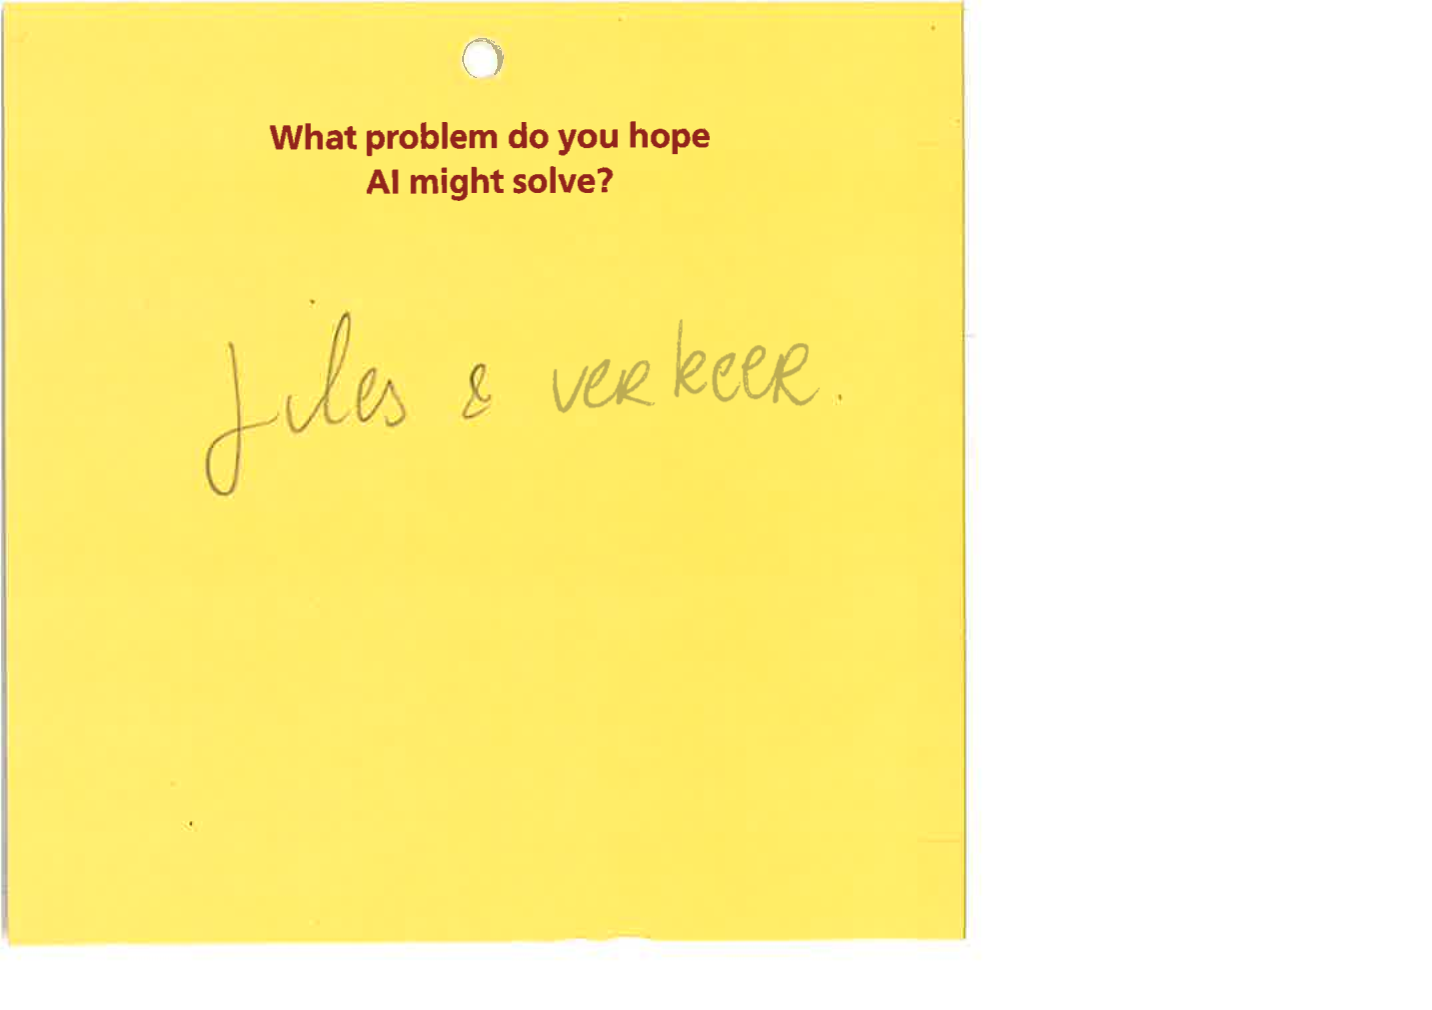 What problem do you hope
AI might solve?
files & verkeer.